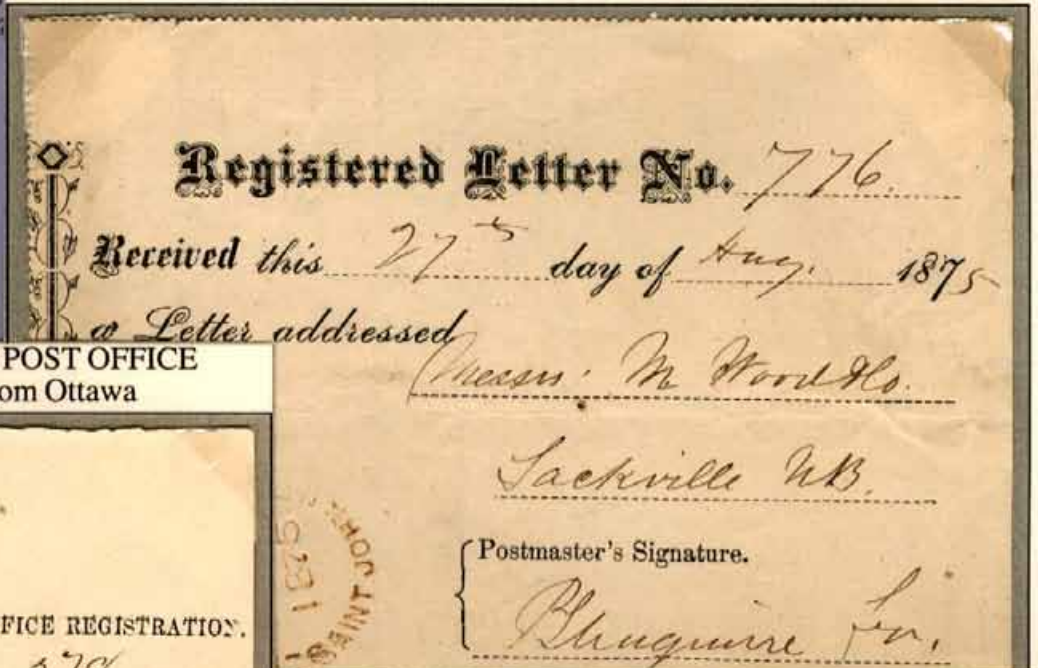 Registered Letter No. 776.
Received this 27th day of Aug. 1875
a Letter addressed
Messrs. M Wood &Co.
Sackville NB.
Postmaster's Signature.
for.
SAINT JOHN
1875
POST OFFICE
om Ottawa
FICE REGISTRATION.